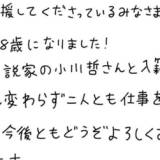 援してくださっているみなさま
8歳になりました！
説家の小川哲さんと入籍
変わらず二人とも仕事を
今後ともどうぞよろしく